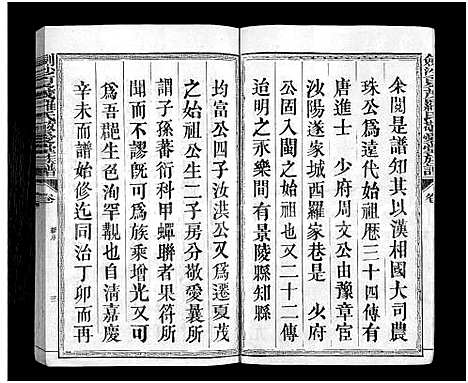 余閱是譜知其以漢相國大司農
珠公爲遠代始祖歷三十四傳有
唐進士　少府周文公由豫章宦
沙陽遂家城西羅家巷是　少府
公固入閩之始祖也又二十二傳
迨明之永樂間有景陵縣知縣
均富公四子汝洪公又爲遷夏茂
之始祖公生二子房分敬愛曩所
謂子孫蕃衍科甲蟬聯者果符所
言而不謬旣可爲族乘增光又可
爲吾郡生色洵罕覯也自淸嘉慶
辛未而譜始修迄同治丁卯而再